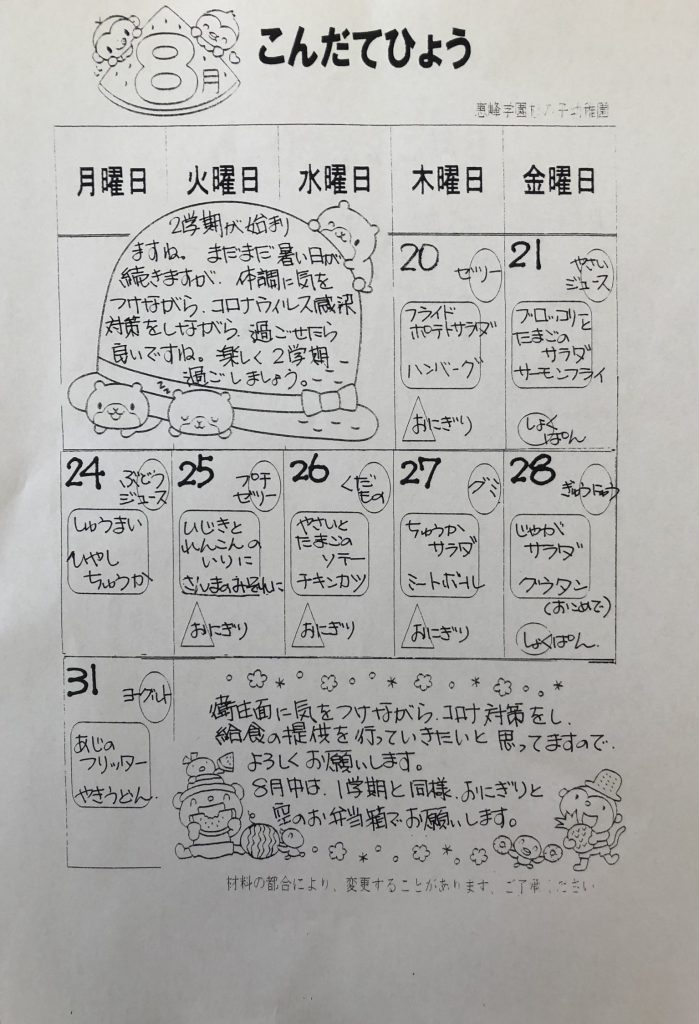 8月
こんだてひょう
恵峰学園 子幼稚園
月曜日
火曜日
水曜日
木曜日
金曜日
2学期が始まり
ますね。まだまだ暑い日が
続きますが、体調に気を
つけながら、コロナウィルス感染
対策をしながら、過ごせたら
良いですね。楽しく2学期
過ごしましょう。
20
ゼリー
フライド
ポテトサラダ
ハンバーグ
おにぎり
21
やさい
ジュース
ブロッコリーと
たまごの
サラダ
サーモンフライ
しょく
ぱん
24
ぶどう
ジュース
しゅうまい
ひやし
ちゅうか
25
プチ
ゼリー
ひじきと
れんこんの
いりに
さんまのみぞれに
おにぎり
26
くだ
もの
やさいと
たまごの
ソテー
チキンカツ
おにぎり
27
グミ
ちゅうか
サラダ
ミートボール
おにぎり
28
ぎゅうにゅう
じゃが
サラダ
グラタン
(おこめで)
しょくぱん
31
ヨーグルト
あじの
フリッター
やきうどん
衛生面に気をつけながら、コロナ対策をし、
給食の提供を行っていきたいと思ってますので、
よろしくお願いします。
8月中は、1学期と同様、おにぎりと
空のお弁当箱でお願いします。
材料の都合により、変更することがあります、ご了承ください